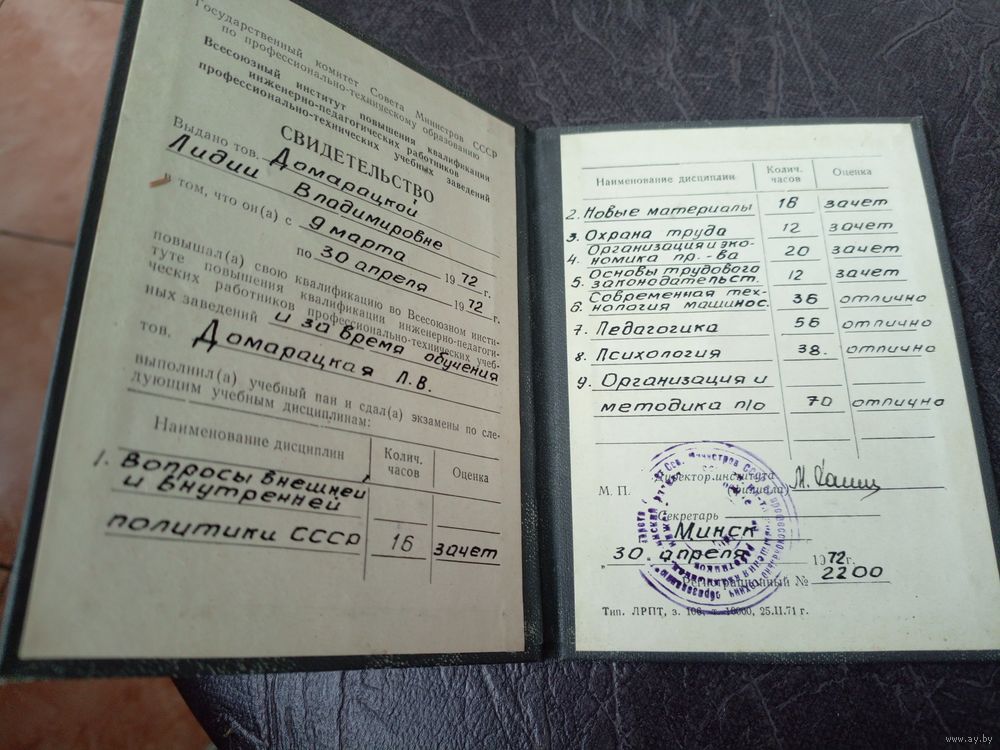 Государственный комитет Совета Министров СССР
по профессионально-техническому образованию
Всесоюзный институт повышения квалификации
инженерно-педагогических работников
профессионально-технических учебных заведений
СВИДЕТЕЛЬСТВО
Выдано тов. Домарацкой
Лидии Владимировне
в том, что он(а) с 9 марта 1972 г.
по 30 апреля 1972 г.
повышал(а) свою квалификацию во Всесоюзном инсти-
туте повышения квалификации инженерно-педагоги-
ческих работников профессионально-технических учеб-
ных заведений и за время обучения
тов. Домарацкая Л.В.
выполнил(а) учебный пан и сдал(а) экзамены по сле-
дующим учебным дисциплинам:
Наименование дисциплин Колич. часов Оценка
1. Вопросы внешней
и внутренней
политики СССР 16 зачет
Наименование дисциплин Колич. часов Оценка
2. Новые материалы 18 зачет
3. Охрана труда 12 зачет
4. Организация и эко-
номика пр.-ва 20 зачет
5. Основы трудового
законодательст. 12 зачет
6. Современная тех-
нология машинос. 36 отлично
7. Педагогика 56 отлично
8. Психология 38. отлично
9. Организация и
методика п/о 70 отлично
М. П. Директор института
(филиала)
Секретарь
Минск
„30. апреля 1972 г.
Регистрационный № 2200
Тип. ЛРПТ, з. 100, т. 10000, 25.II.71 г.
www.ay.by